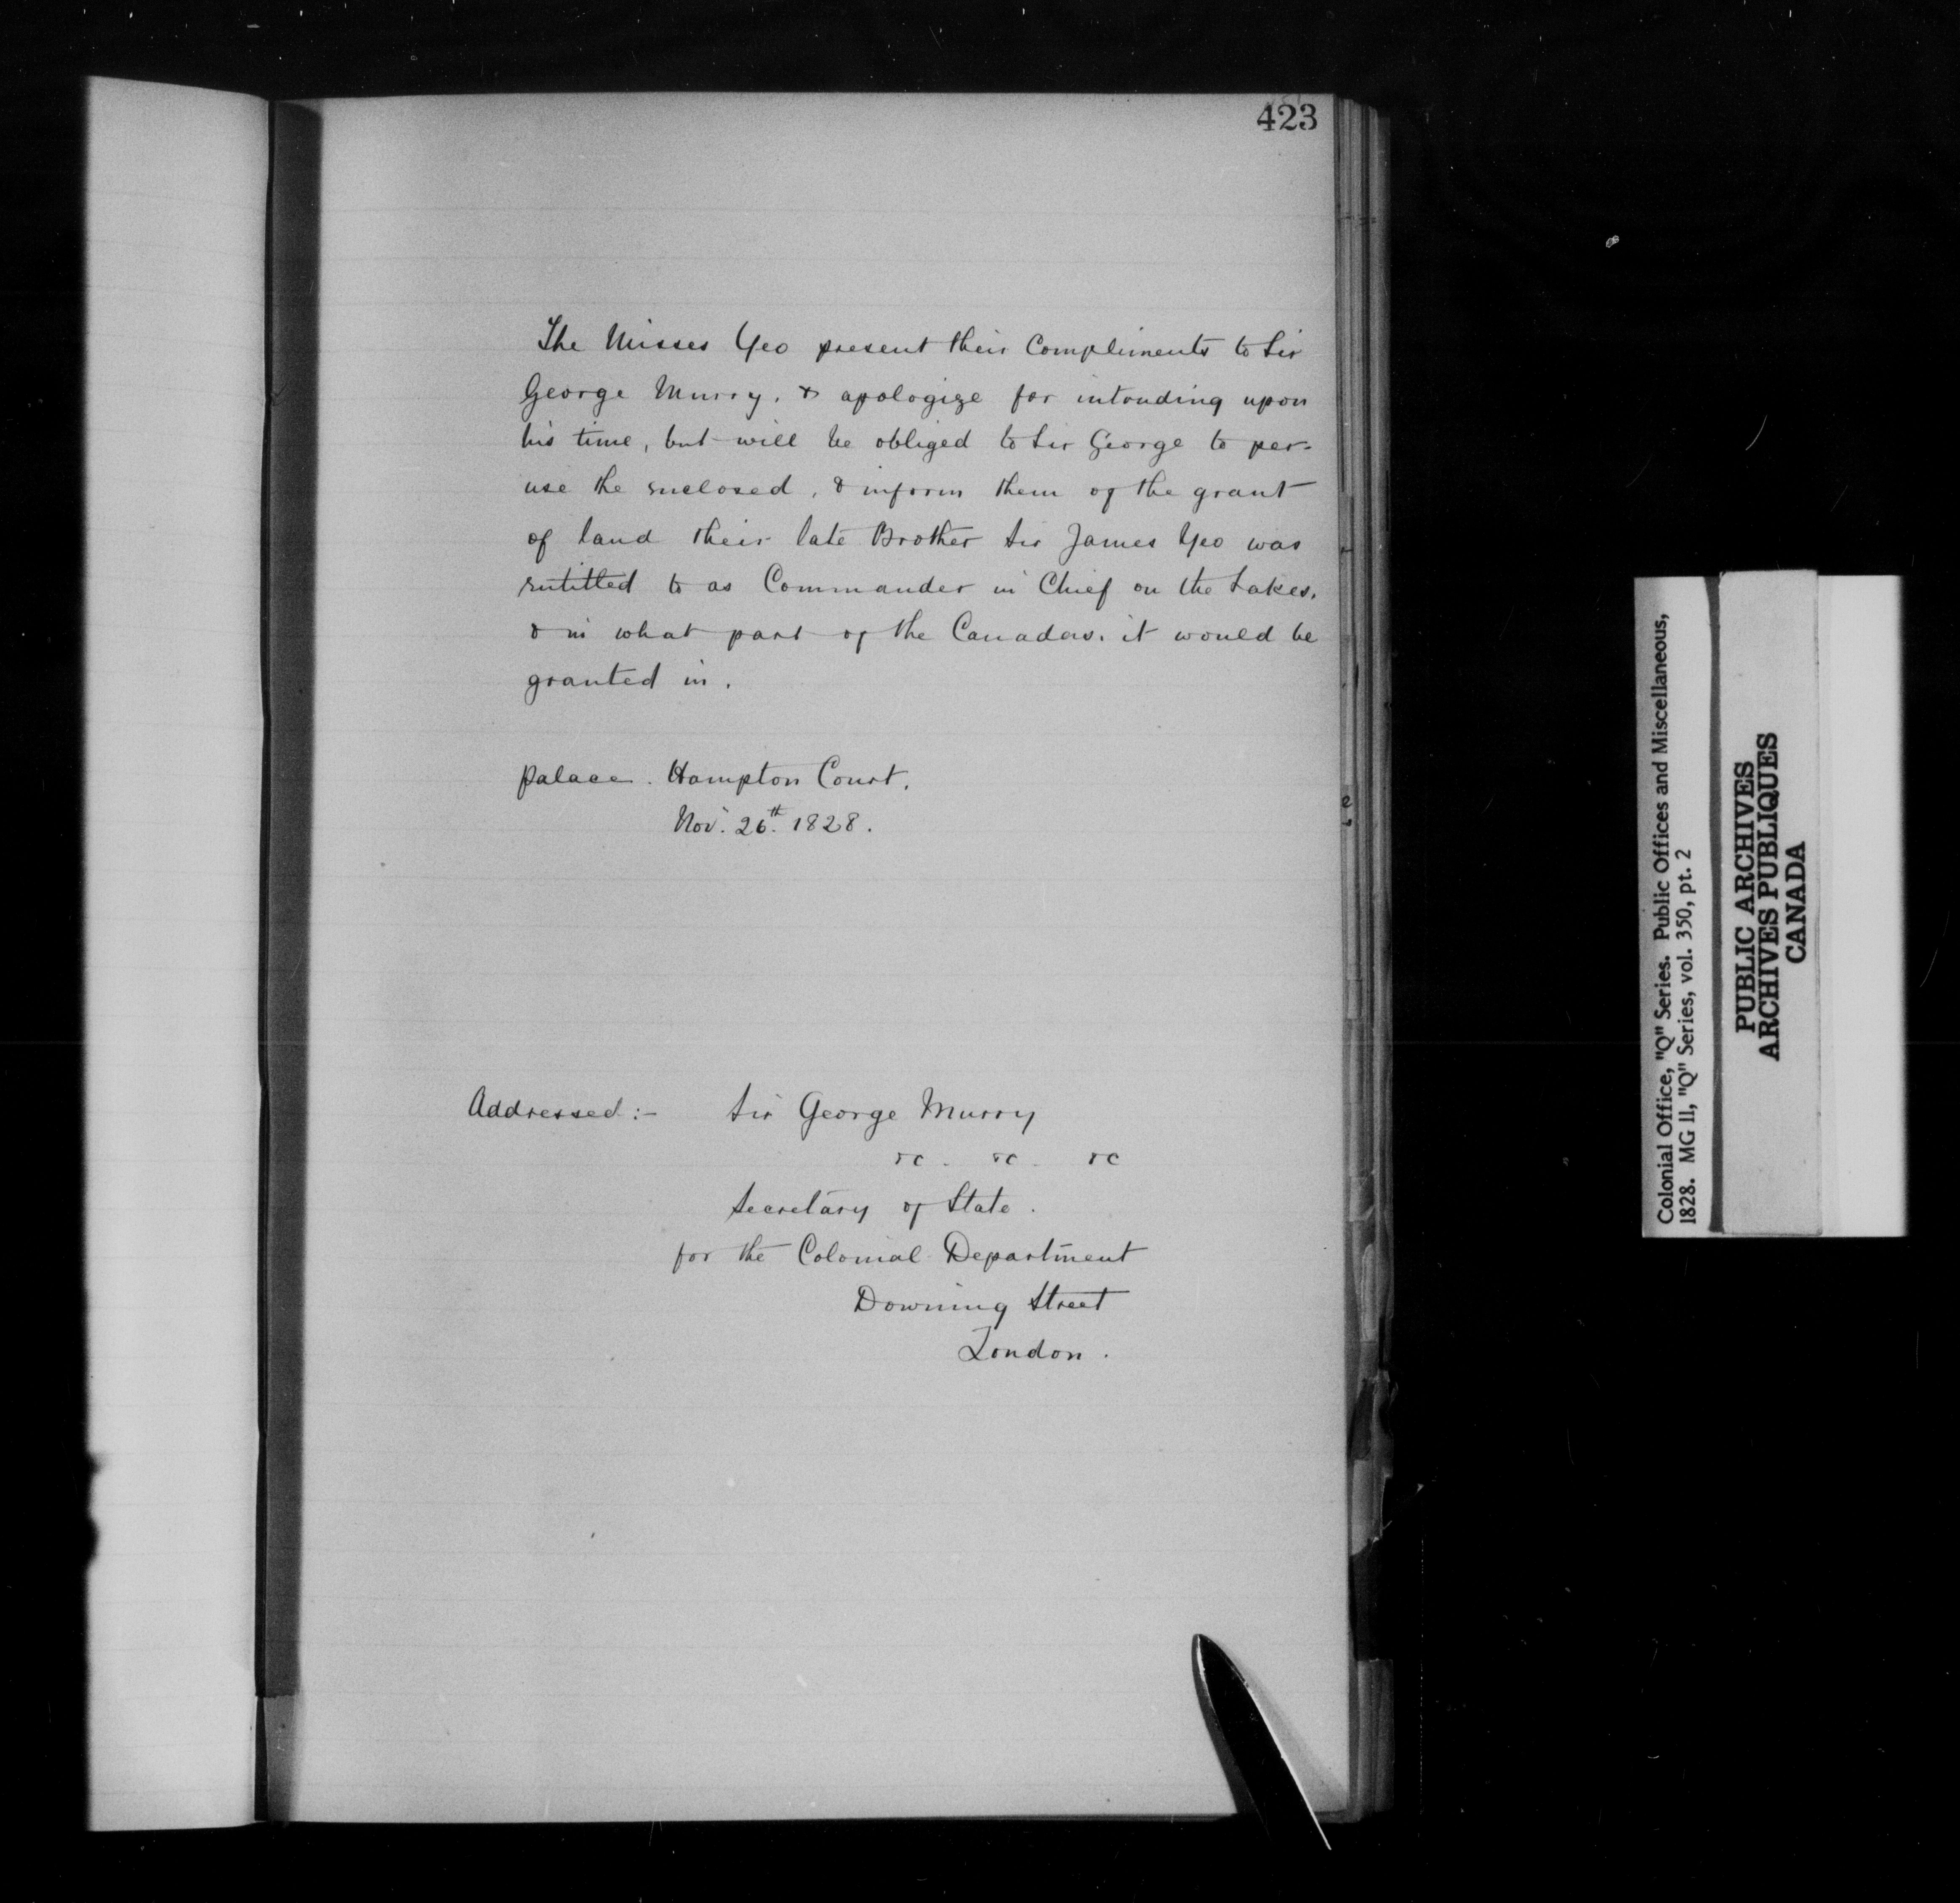 423
The Misses Yeo present their Compliments to Sir
George Murry, & apologize for intruding upon
his time, but will be obliged to Sir George to per-
use the enclosed, & inform them of the grant
of land their late Brother Sir James Yeo was
entitled to as Commander in Chief on the Lakes,
& in what part of the Canadas. it would be
granted in.
Palace. Hampton Court.
Nov. 26th. 1828.
Addressed:- Sir George Murry
&c. &c. &c
Secretary of State.
for the Colonial Department
Downing Street
London.
Colonial Office, "Q" Series. Public Offices and Miscellaneous,
1828. MG 11, "Q" Series, vol. 350, pt. 2
PUBLIC ARCHIVES
ARCHIVES PUBLIQUES
CANADA